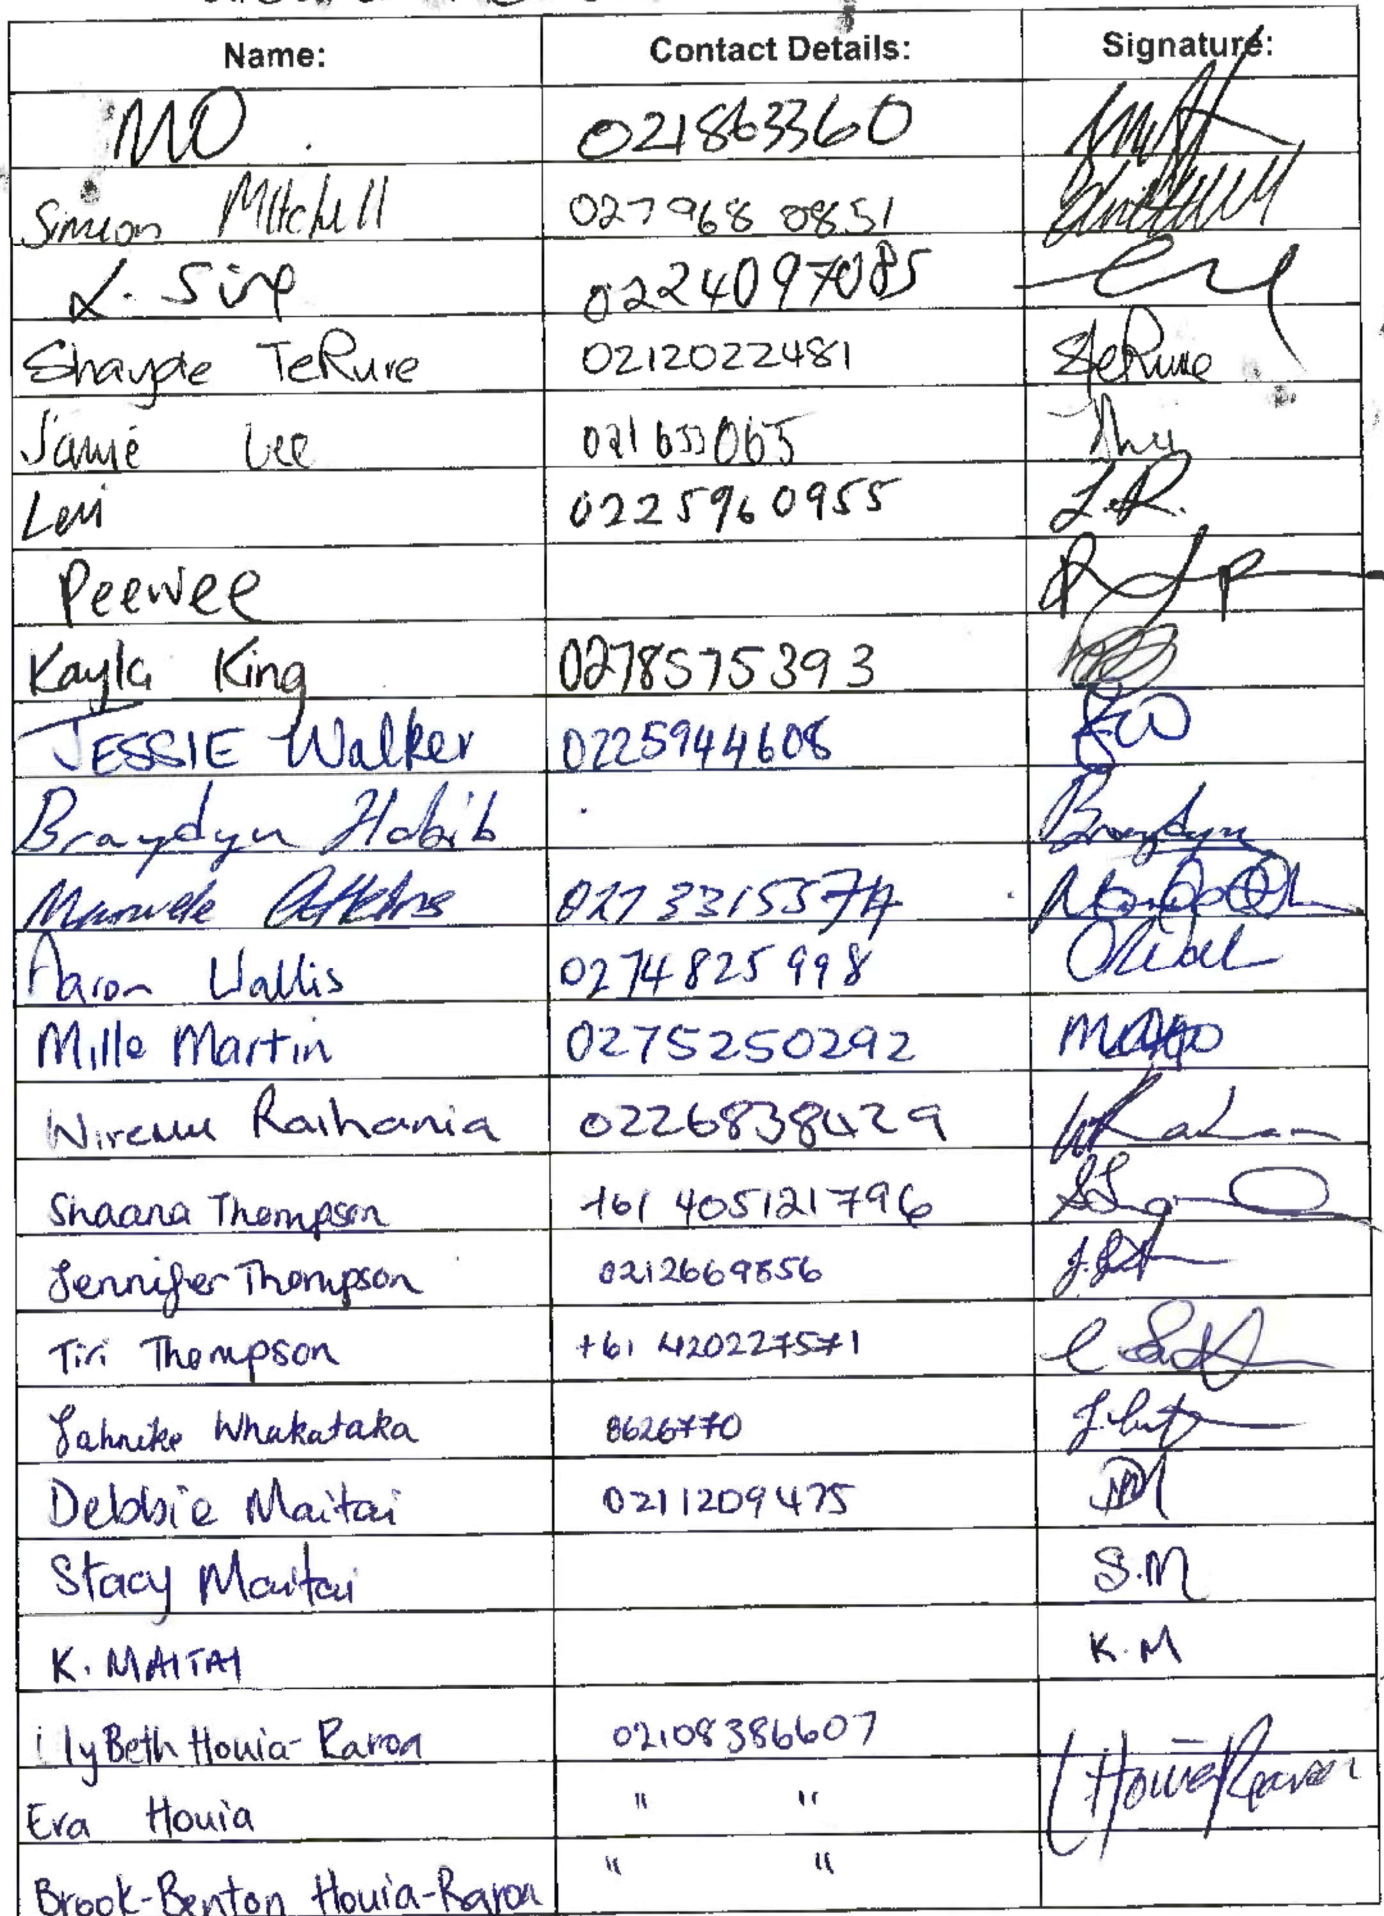 Name: Contact Details: Signature:
MO . 021863360
Simeon Mitchell 027 968 0851
L. Sire 0224097085
Shayde TeRure 02120222481 SteRure
Jamie Lee 021633065
Levi 0225960955 L.R.
Peewee
Kayla King 0278575393
JESSIE Walker 0225944608 JW
Braydyn Habib Braydyn
Atkins 0273315574
Aaron Wallis 0274825998
Mille Martin 0275250292
Wiremu Raihania 0226838429
Shaana Thompson +61 405121796
Jennifer Thompson 0212669856
Tiri Thompson +61 420227571
Jahnike Whakataka 8626770
Debbie Maitai 0211209475 DM
Stacy Maitai S.M
K. MAITAI K.M
ilyBeth Houia-Raroa 02108386607
Era Houia " " L HouiaRaroa
Brook-Benton Houia-Raroa " "